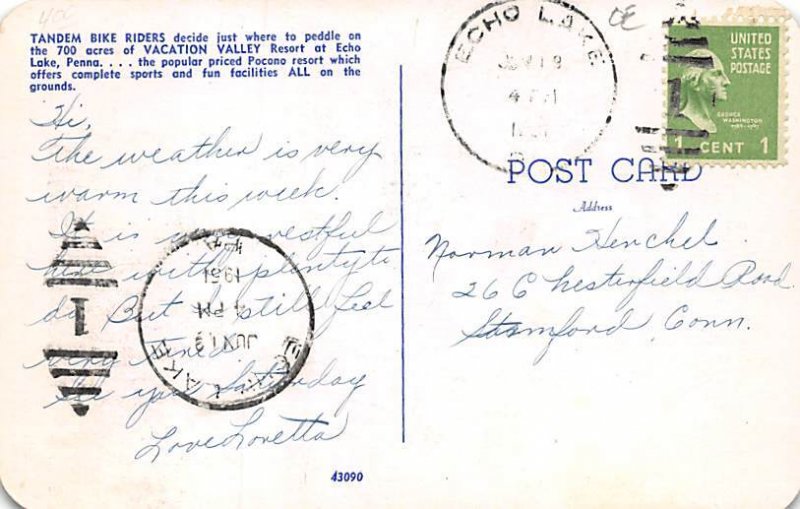 40¢
TANDEM BIKE RIDERS decide just where to peddle on
the 700 acres of VACATION VALLEY Resort at Echo
Lake, Penna. . . . the popular priced Pocono resort which
offers complete sports and fun facilities ALL on the
grounds.
Hi,
The weather is very
warm this week.
It is very restful
here with plenty to
do. But I still feel
very tired.
See you Saturday
Love Loretta
ECHO LAKE
JUN 13
4 PM
1951
PA
1
43090
ECHO LAKE
JUN 13
4 PM
1951
CE
UNITED
STATES
POSTAGE
GEORGE
WASHINGTON
1 CENT 1
POST CARD
Address
Norman Henchel
26 Chesterfield Road
Stamford, Conn.